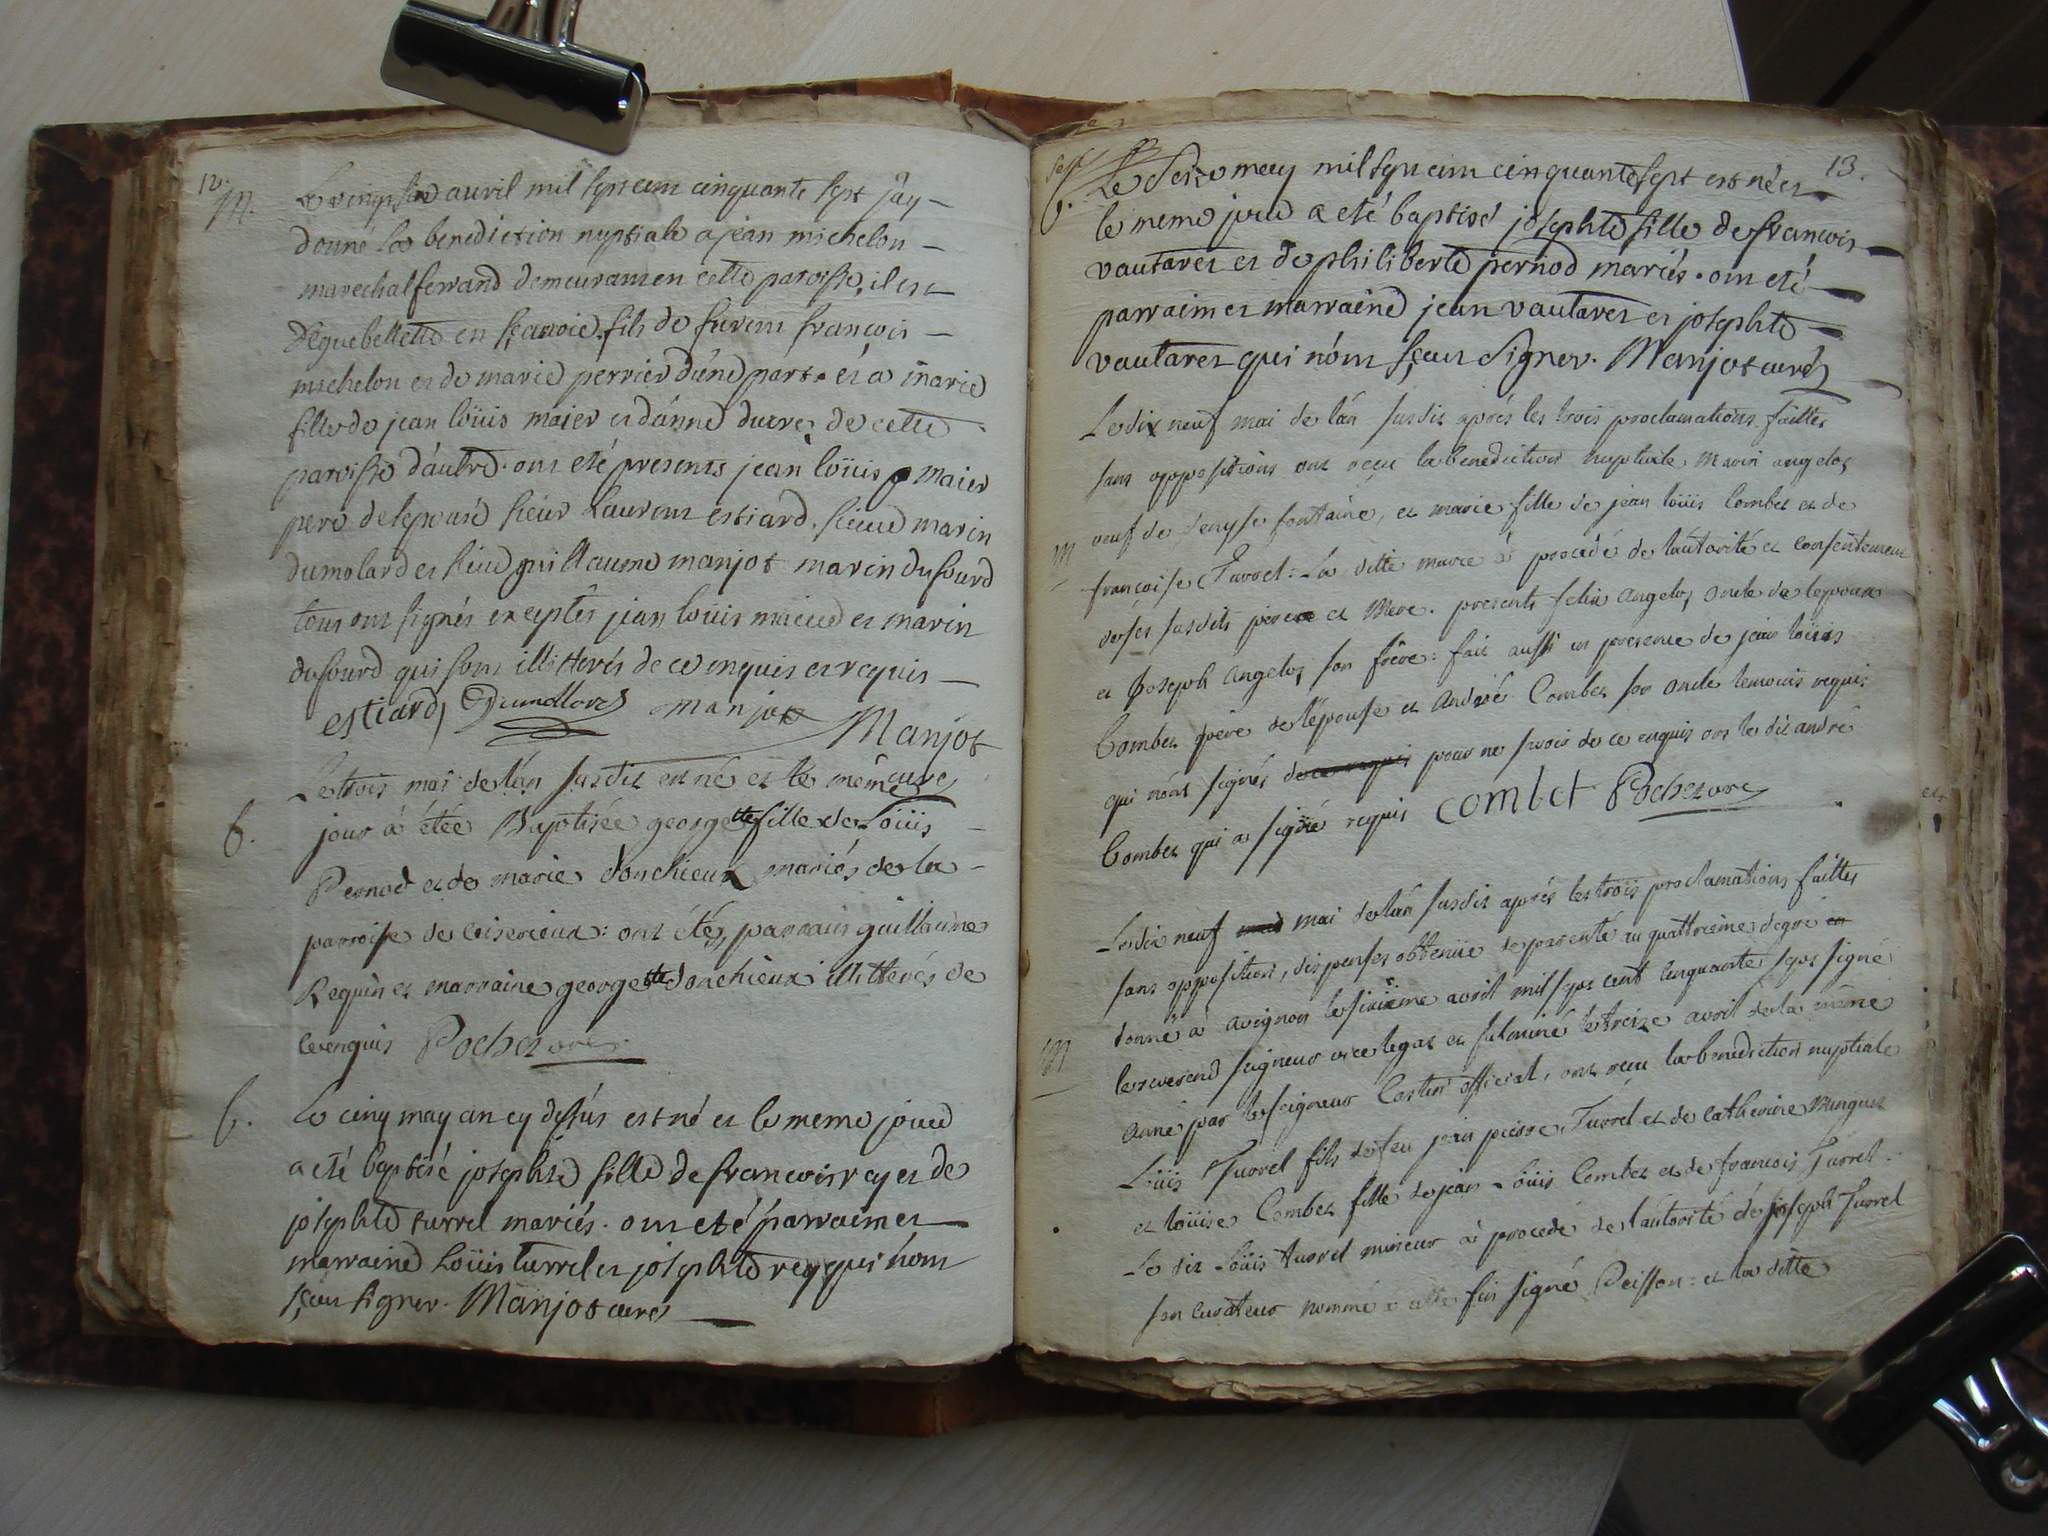 12.
M.
Le vingt six avril mil sept cent cinquante sept j'ay
donné la benediction nuptiale a jean michelon
marechal ferrand demeurant en cette paroisse, il est
déguebellette en sçavoie. fils de furent françois
michelon et de marie perrier d'úne part. et a marie
fille de jean loüis maier et d'ánne ducre, de cette
paroisse d'áutre. ont eté presents jean loüis maier
pere de lepousé sieur Laurent estiard. sieur marin
dumolard et sieur guillaume manjot marin dufourd
tous ont signés exceptés jean loüis maier et marin
dufourd qui sont illitterés de ce enquis et requis
estiard, Dumollard manjot Manjot
curé
Le trois mai de l'án susdit est né et le même
b.
jour á étée Baptisée georgette fille de Loüis
Pernod et de marie donchieux mariés de la
parroisse de ceiserieux: ont étés parrain guillaume
Requin et marraine georgette donchieux illitterés de
ce enquis Pochet curé
b.
Le cinq may an cy desus est né et le meme jour
a eté baptisé josephte fille de francois rey et de
josephte turrel mariés. ont eté parrain et
marraine Loüis turrel et josephte rey qui n'ont
sçeu signer. Manjot curé
13.
b.
Le seize mey mil sept cent cinquante sept est né et
le meme jour a eté baptisé josephte fille de francois
vautaret et de philiberte pernod mariés. ont eté
parrain et marraine jean vautaret et josephte
vautaret qui n'ont sçeu signer. Manjot curé
Le dix neuf mai de l'án susdit aprés les trois proclamations faittes
sans oppositions ont reçu la benediction nuptiale Marin angelos
M
veuf de denyse fontaine, et marie fille de jean loüis Combet et de
françoise Turrel: La ditte marie á procedé de l'autorité et consentement
de ses susdits pere et Mere. presents felix Angelos oncle de l'epoux
et Joseph Angelos son frère: fait aussi en presence de jean loüis
Combet père de l'épouse et André Combet son oncle temoins requis
qui n'ont signés de ce requis pour ne sçavoir de ce enquis ors le dit andré
Combet qui a signé requis combet Pochet curé
Le dix neuf mai de l'án susdit aprés les trois proclamations faittes
sans opposition, dispenses obtenüe de parenté au quattrieme degré en
donné à avignon le sixième avril mil sept cent cinquante sept signé
M
le reverend seigneur vice legat et fulminé le treize avril de la même
anné par le seigneur Castin official, ont reçu la benediction nuptiale
Loüis Turrel fils de feu jean pierre Turrel et de Catherine Munguet
et loüise Combet fille de jean Loüis Combet et de francois Turrel
Le dit Loüis turrel mineur à procedé de l'autorité de joseph Turrel
son curateur nommé a cette fin signé Peisson: et la ditte